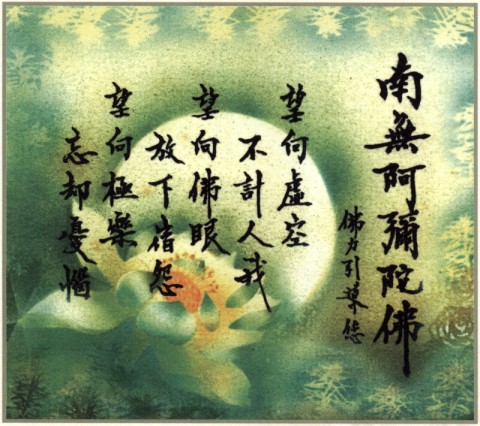 南無阿彌陀佛
佛力引導您
望向虛空
不計人我
望向佛眼
放下宿怨
望向極樂
忘却憂惱